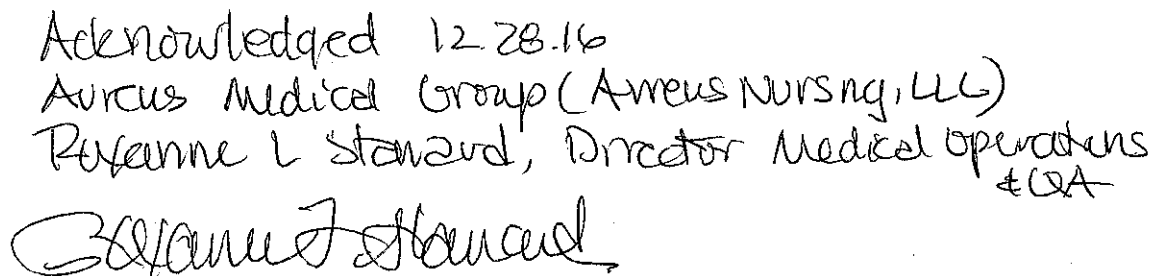 Acknowledged 12.28.16
Aureus Medical Group (Aureus Nursing, LLC)
Roxanne L Stanard, Director Medical Operations
& QA
Roxanne L. Stanard